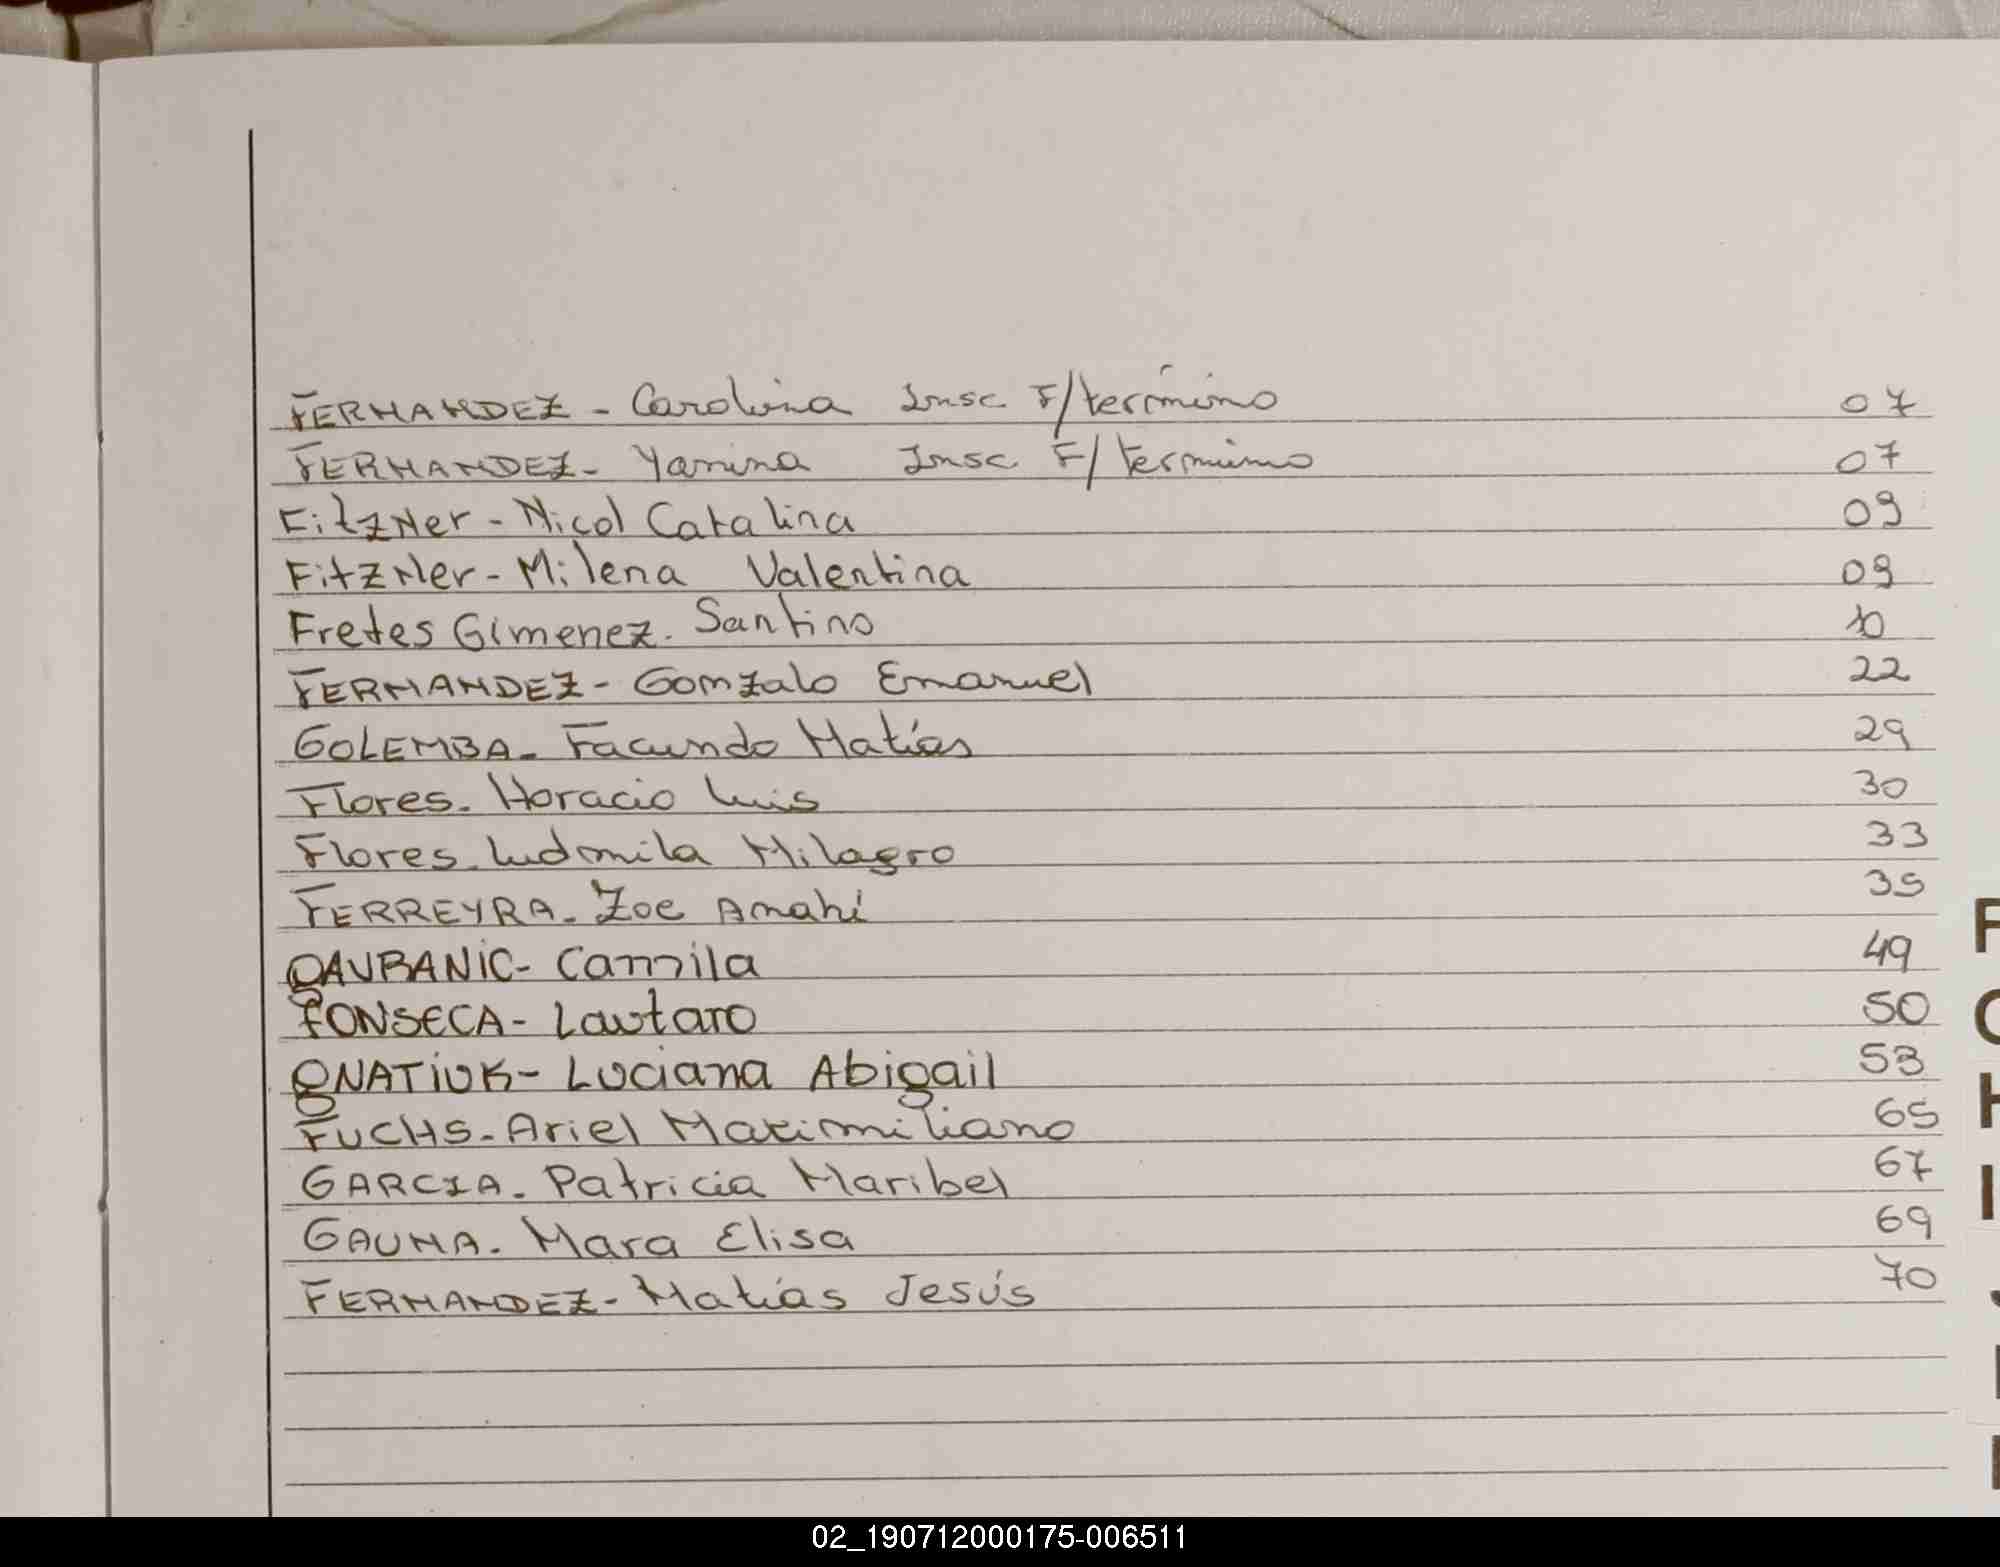 FERNANDEZ - Carolina Insc F/término 07
FERNANDEZ - Yanina Insc F/término 07
FitzNer - Nicol Catalina 09
FitzNer - Milena Valentina 09
Fretes Gimenez. Santino 10
FERNANDEZ - Gonzalo Emanuel 22
GOLEMBA - Facundo Matías 29
Flores - Horacio Luis 30
Flores - Ludmila Milagro 33
FERREYRA - Zoe Anahí 35
gAVRANIC - Camila 49
FONSECA - Lautaro 50
gNATIUK - Luciana Abigail 53
FUCHS - Ariel Maximiliano 65
GARCIA - Patricia Maribel 67
GAUNA - Mara Elisa 69
FERNANDEZ - Matías Jesús 70
F
G
H
I
J
02_190712000175-006511